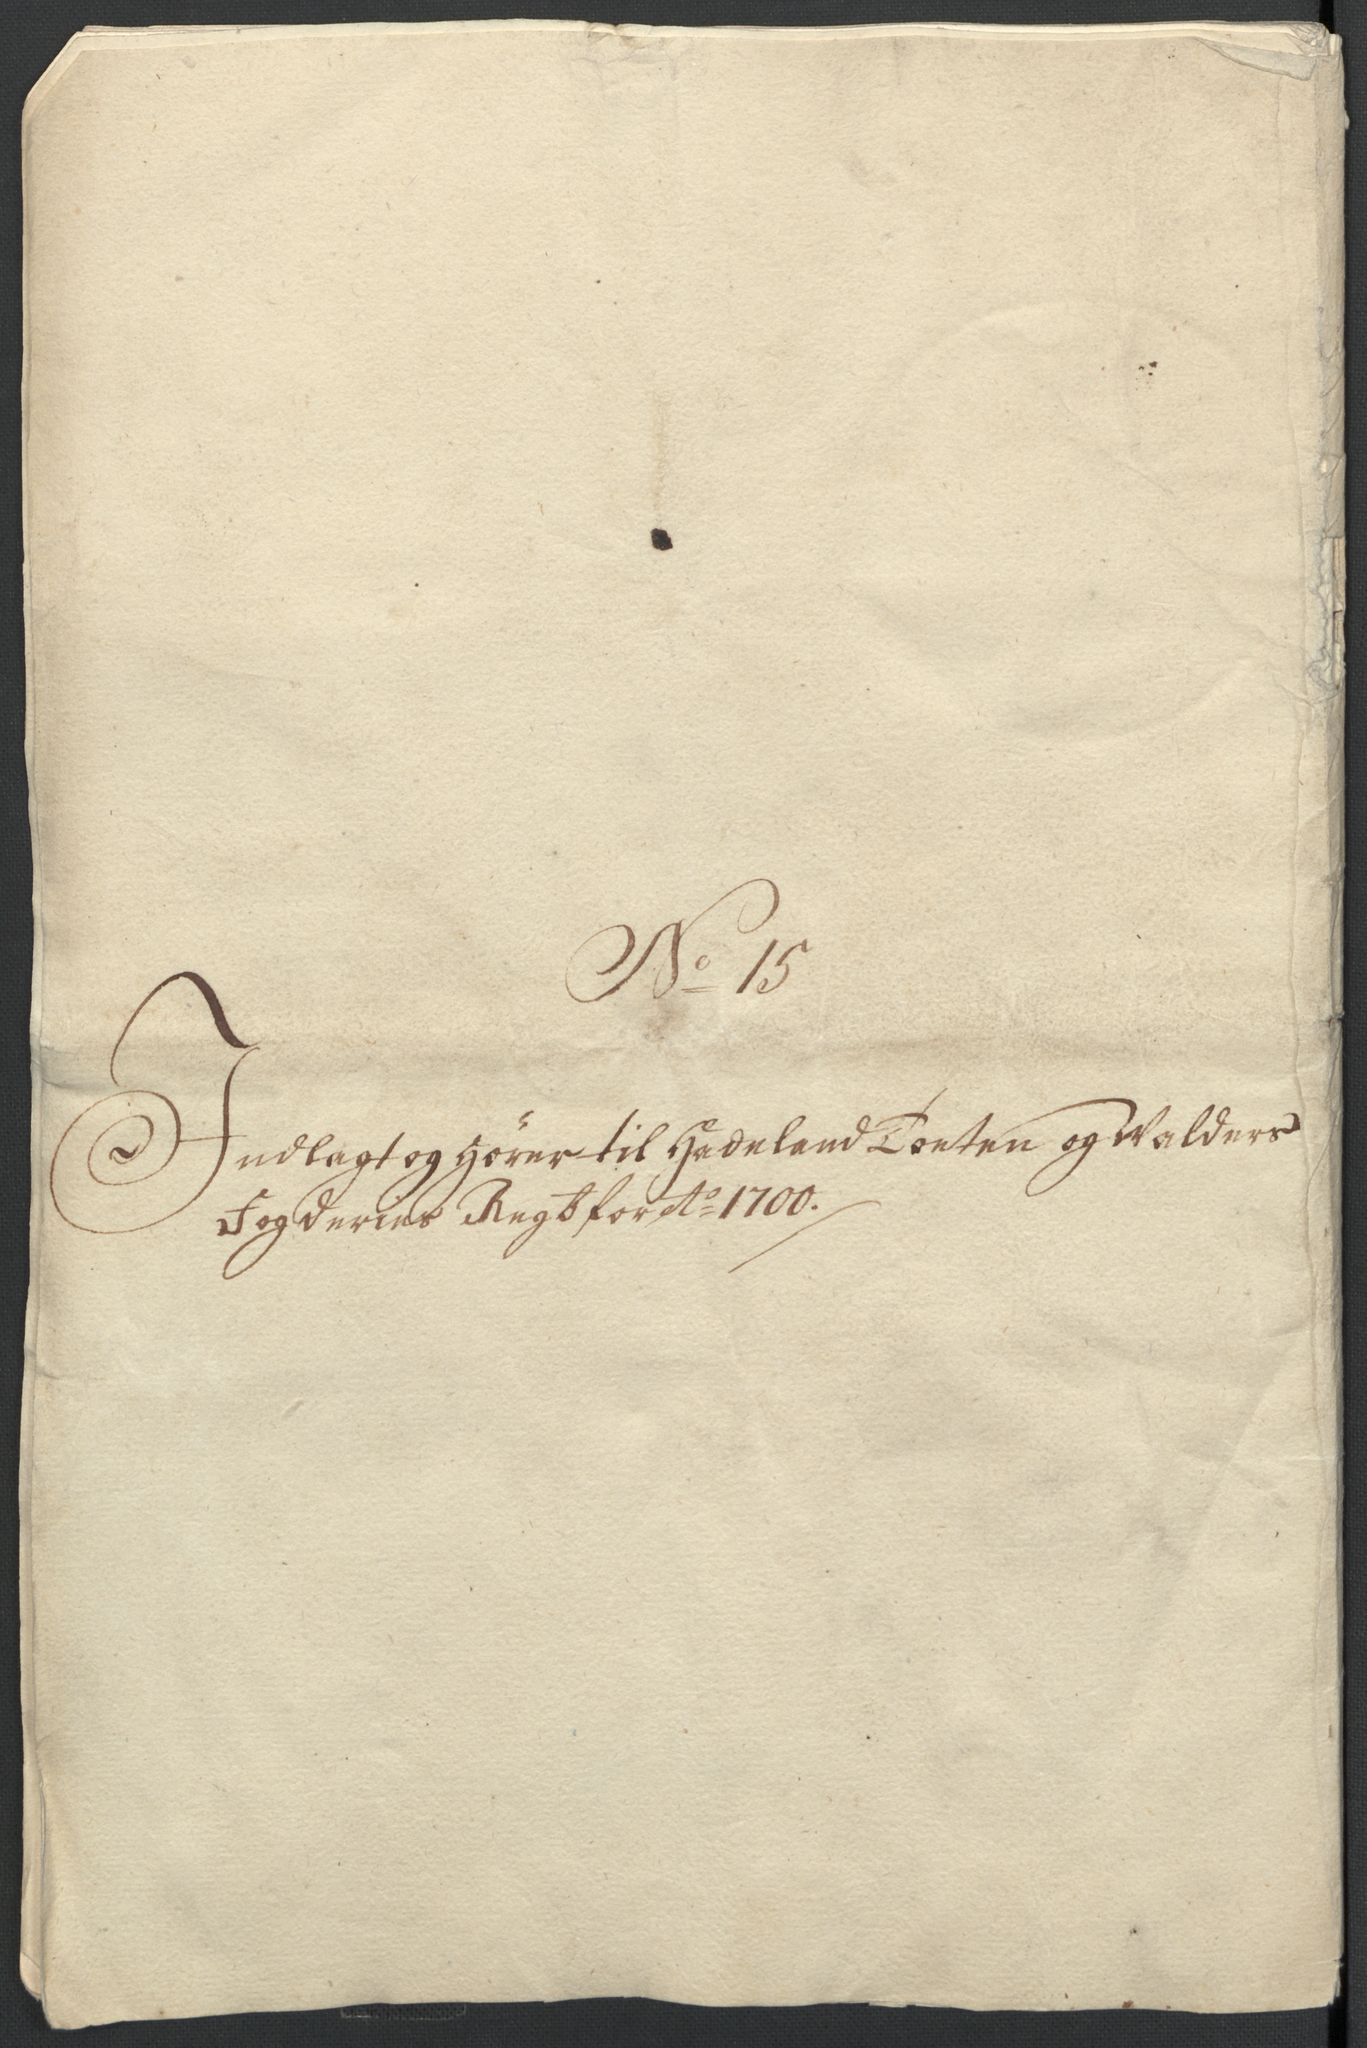 No 15
Indlagt og Hörer til Hadeland Toeten og Walders
Fogderies Regsb for Ao 1700.